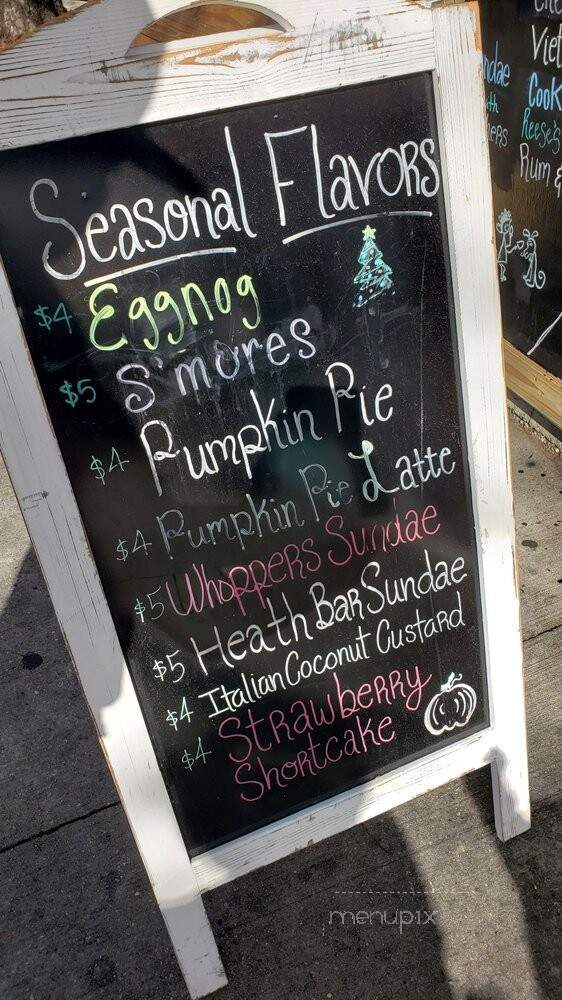 Seasonal Flavors
$4 Eggnog
$5 S'mores
$4 Pumpkin Pie
$4 Pumpkin Pie Latte
$5 Whoppers Sundae
$5 Heath Bar Sundae
$4 Italian Coconut Custard
$4 Strawberry
Shortcake
Viet
Cook
Reese's
Rum &
menupix